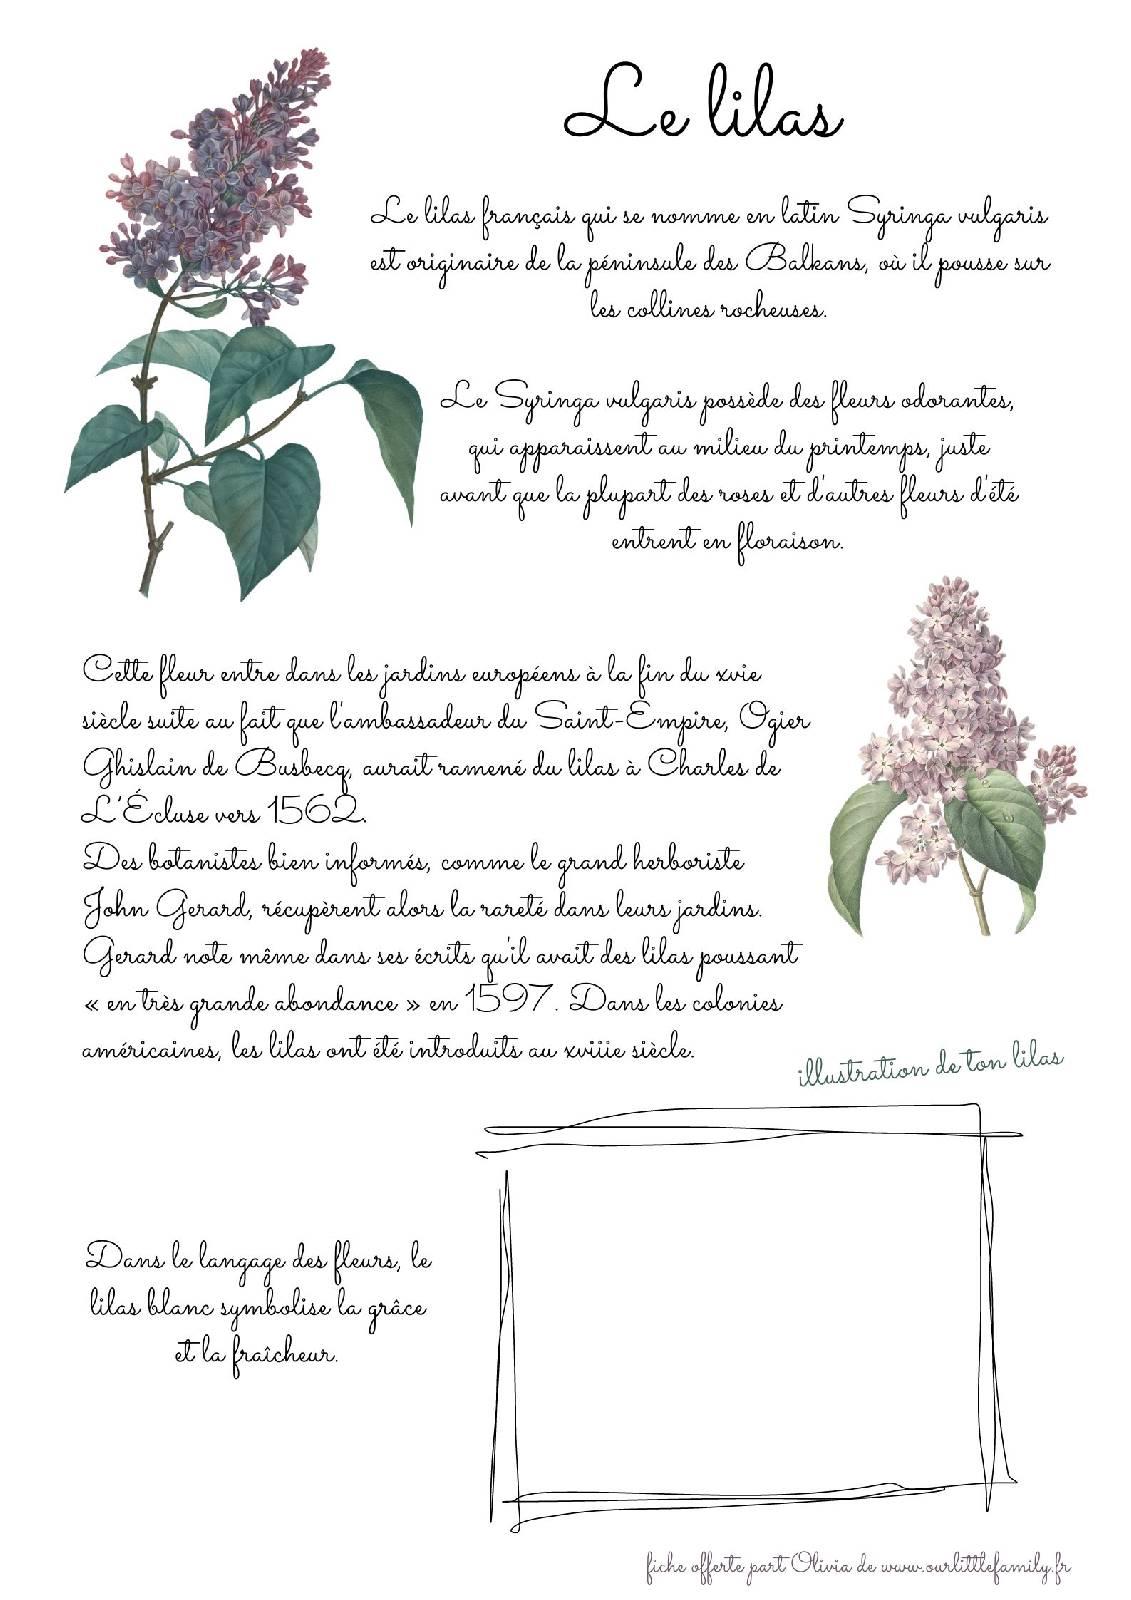 Le lilas
Le lilas français qui se nomme en latin Syringa vulgaris
est originaire de la péninsule des Balkans, où il pousse sur
les collines rocheuses.
Le Syringa vulgaris possède des fleurs odorantes,
qui apparaissent au milieu du printemps, juste
avant que la plupart des roses et d'autres fleurs d'été
entrent en floraison.
Cette fleur entre dans les jardins européens à la fin du xvie
siècle suite au fait que l'ambassadeur du Saint-Empire, Ogier
Ghislain de Busbecq, aurait ramené du lilas à Charles de
L'Écluse vers 1562.
Des botanistes bien informés, comme le grand herboriste
John Gerard, récupèrent alors la rareté dans leurs jardins.
Gerard note même dans ses écrits qu'il avait des lilas poussant
« en très grande abondance » en 1597. Dans les colonies
américaines, les lilas ont été introduits au xviiie siècle.
illustration de ton lilas
Dans le langage des fleurs, le
lilas blanc symbolise la grâce
et la fraîcheur.
fiche offerte part Olivia de www.ourlittlefamily.fr